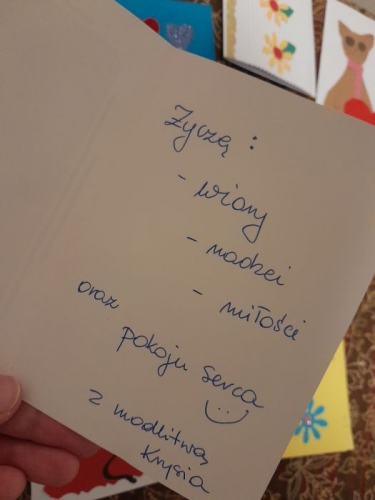 Życzę :
- wiary
- nadziei
- miłości
oraz
pokoju serca
z modlitwą
Krysia